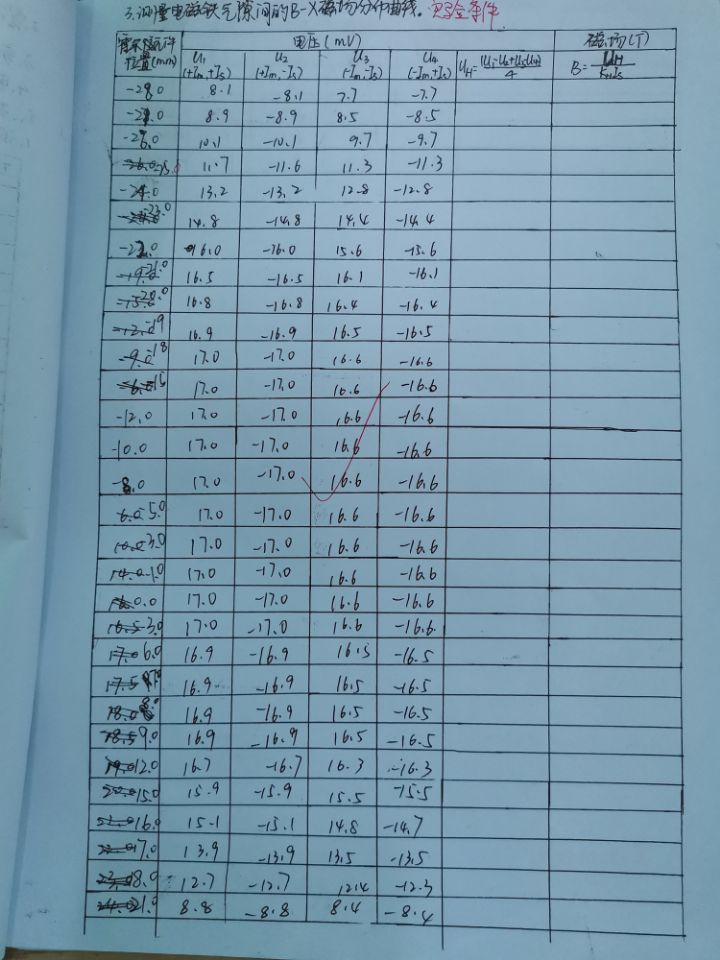 3.测量电磁铁气隙间的B-X磁场分布曲线。实验条件
霍尔元件位置(mm) 电压(mV) 磁场(T)
U₁(+Im,+Is) U₂(+Im,-Is) U₃(-Im,-Is) U₄(-Im,+Is) UH=|U₁-U₂+U₃-U₄|/4 B=UH/KHIs
8.1 -8.1 7.7 -7.7
8.9 -8.9 8.5 -8.5
10.1 -10.1 9.7 -9.7
11.7 -11.6 11.3 -11.3
13.2 -13.2 12.8 -12.8
-23.0 14.8 -14.8 14.4 -14.4
16.0 -16.0 15.6 -15.6
16.5 -16.5 16.1 -16.1
-20.0 16.8 -16.8 16.4 -16.4
-19 16.9 -16.9 16.5 -16.5
-18 17.0 -17.0 16.6 -16.6
-15 17.0 -17.0 16.6 -16.6
-12.0 17.0 -17.0 16.6 -16.6
-10.0 17.0 -17.0 16.6 -16.6
-8.0 17.0 -17.0 16.6 -16.6
5.0 17.0 -17.0 16.6 -16.6
3.0 17.0 -17.0 16.6 -16.6
1.0 17.0 -17.0 16.6 -16.6
0.0 17.0 -17.0 16.6 -16.6
3.0 17.0 -17.0 16.6 -16.6
6.0 16.9 -16.9 16.5 -16.5
16.9 -16.9 16.5 -16.5
16.9 -16.9 16.5 -16.5
9.0 16.9 -16.9 16.5 -16.5
12.0 16.7 -16.7 16.3 -16.3
15.0 15.9 -15.9 15.5 -15.5
16.0 15.1 -15.1 14.8 -14.7
17.0 13.9 -13.9 13.5 -13.5
18.0 12.7 -12.7 12.4 -12.3
21.0 8.8 -8.8 8.4 -8.4